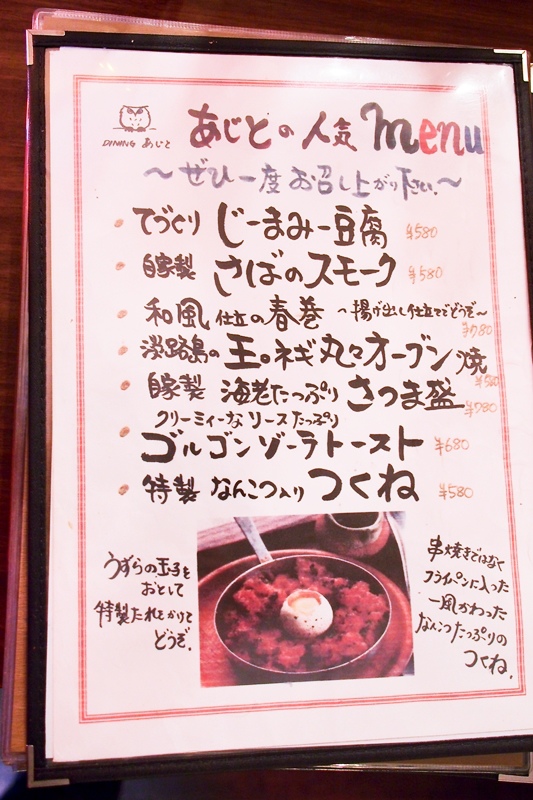 DINING あじと
あじとの人気 menu
〜ぜひ一度お召し上がり下さい。〜
てづくり じーまみー豆腐 ¥580
自家製 さばのスモーク ¥580
和風仕立の春巻 〜揚げ出し仕立てでどうぞ〜
¥780
淡路島の玉ネギ丸々オーブン焼
¥580
自家製 海老たっぷりさつま盛 ¥780
クリーミィーなソースたっぷり
ゴルゴンゾーラトースト ¥680
特製 なんこつ入り つくね ¥580
うずらの玉子を
おとして
特製たれをかけて
どうぞ。
串焼きではなく
フライパンに入った
一風かわった
なんこつたっぷりの
つくね。